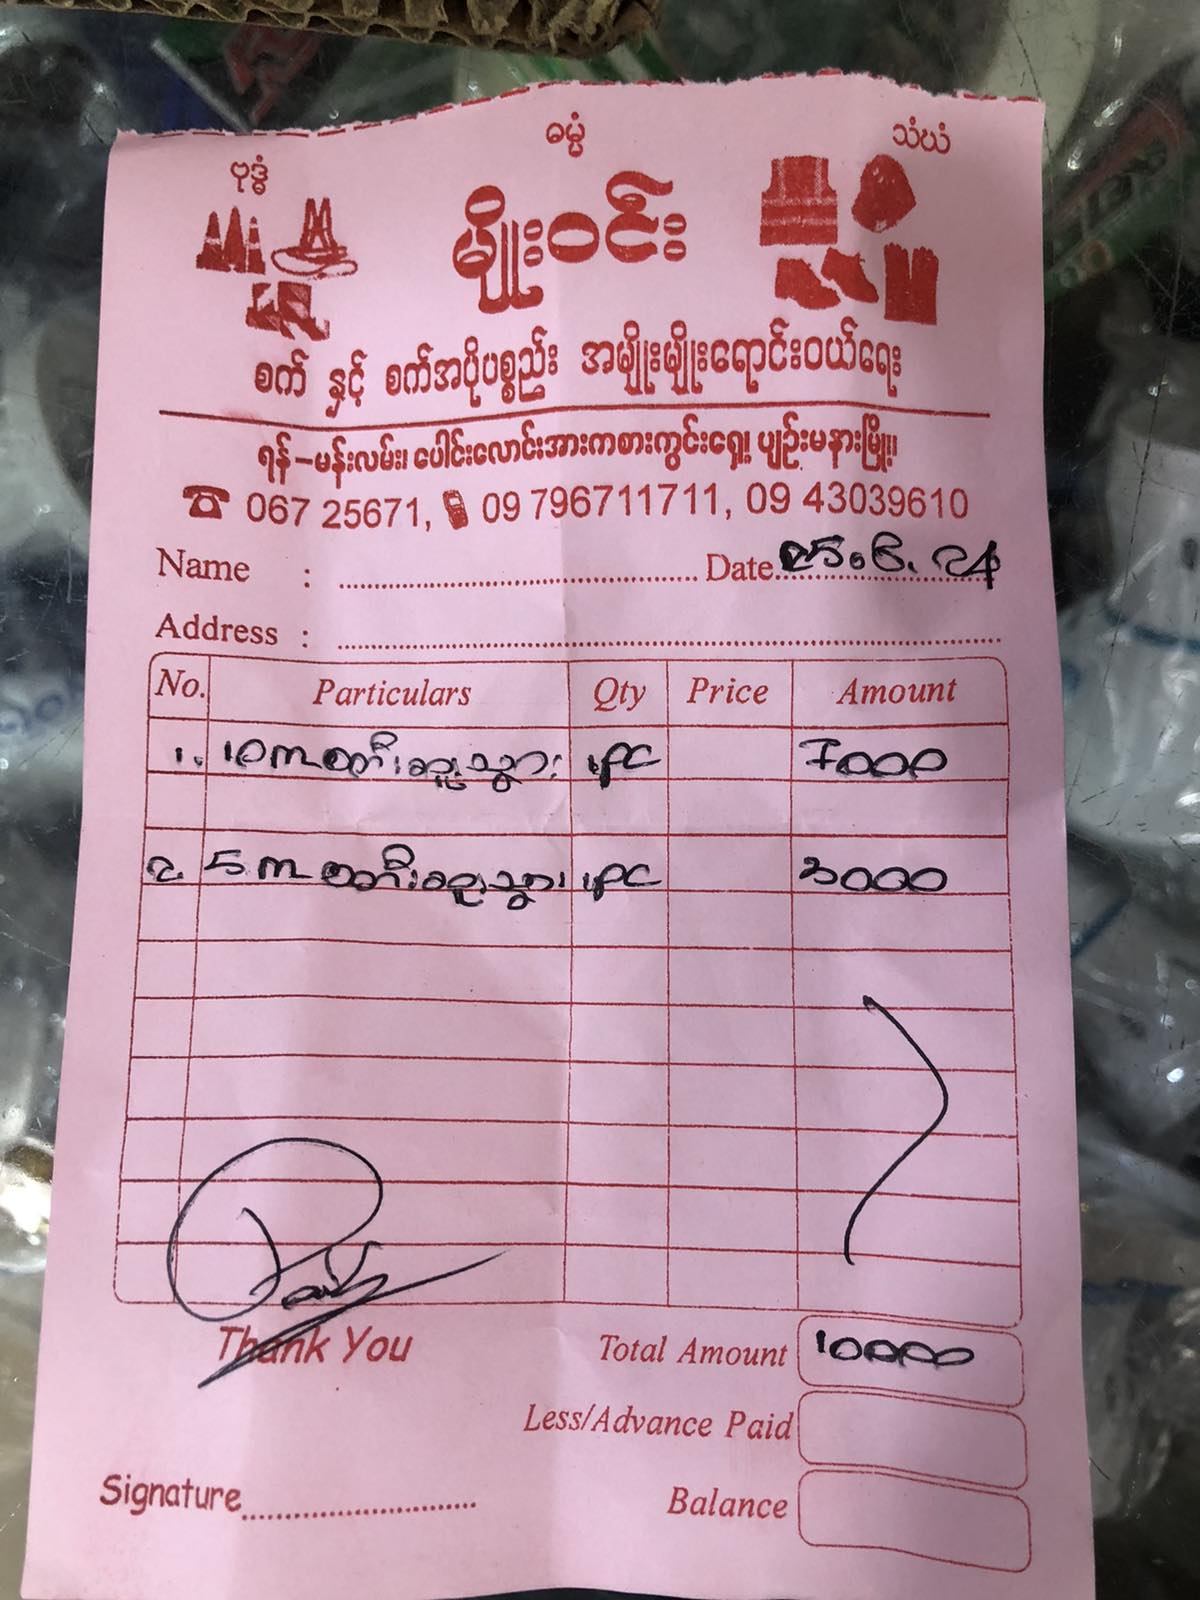 ဗုဒ္ဓံ ဓမ္မံ သံဃံ
မျိုးဝင်း
စက် နှင့် စက်အပိုပစ္စည်း အမျိုးမျိုးရောင်းဝယ်ရေး
ရန်-မန်းလမ်း၊ ပေါင်းလောင်းအားကစားကွင်းရှေ့၊ ပျဉ်းမနားမြို့။
067 25671, 09 796711711, 09 43039610
Name : Date 25.6.24
Address :
No. Particulars Qty Price Amount
1. 10 1PC 7000
2. 5 1PC 3000
Thank You Total Amount 10000
Less/Advance Paid
Signature Balance